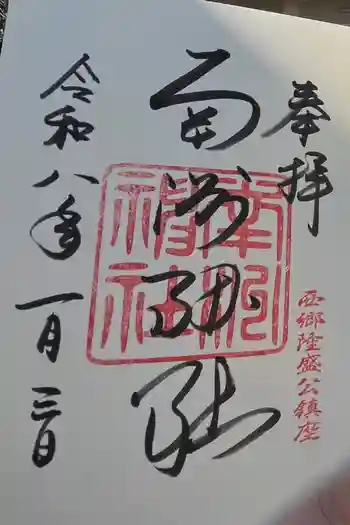 奉拝
西郷隆盛公鎮座
南洲神社
南洲神社
令和八年一月三日